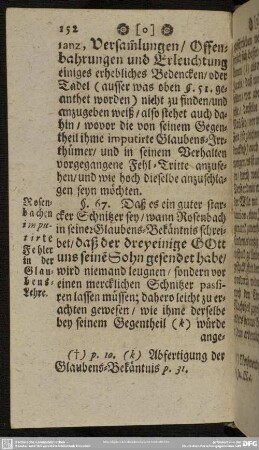 152 [o]
ianz, Versam̃lungen/ Offen-
bahrungen und Erleuchtung
einiges erhebliches Bedencken/ oder
Tadel (ausser was oben §. 51. ge-
anthet worden) nicht zu finden/ und
anzugeben weiß/ als stehet auch da-
hin/ wovor die von seinem Gegen-
theil ihme imputirte Glaubens-Irr-
thümer/ und in seinem Verhalten
vorgegangene Fehl-Tritte anzuse-
hen/ und wie hoch dieselbe anzuschla-
gen seyn möchten.
Rosen-
bachen
impu-
tirte
Fehler
in der
Glau-
bens-
Lehre.
§. 67. Daß es ein guter star-
cker Schnitzer sey/ wann Rosenbach
in seiner Glaubens-Bekäntnis schrei-
bet/ daß der dreyeinige GOtt
uns seinẽ Sohn gesendet habe/
wird niemand leugnen/ sondern vor
einen mercklichen Schnitzer passi-
ren lassen müssen; dahero leicht zu er-
achten gewesen/ wie ihme derselbe
bey seinem Gegentheil (k) würde
ange-
(†) p. 10. (k) Abfertigung der
Glaubens-Bekäntnis p. 31.